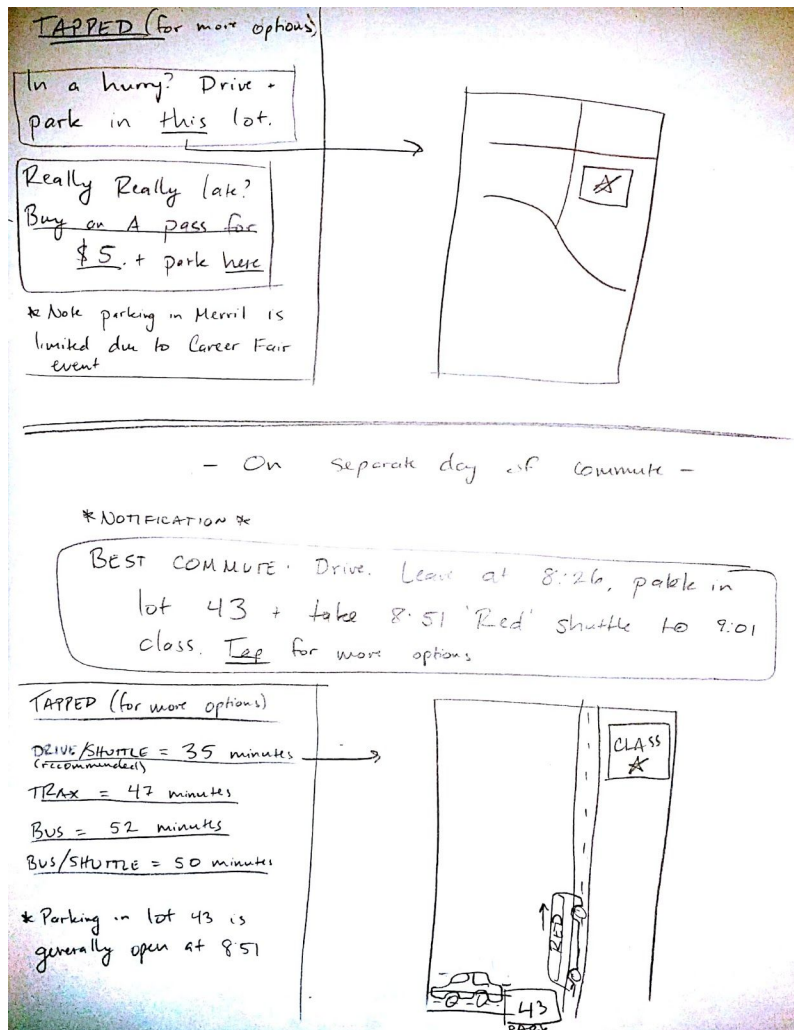 TAPPED (for more options)
In a hurry? Drive +
park in this lot.
Really Really late?
Buy an A pass for
$5. + park here
* Note parking in Merril is
limited due to Career Fair
event
- On separate day of commute -
* NOTIFICATION *
BEST COMMUTE. Drive. Leave at 8:26, park in
lot 43 + take 8:51 'Red' shuttle to 9:01
class. Tap for more options
TAPPED (for more options)
DRIVE/SHUTTLE = 35 minutes
(recommended)
TRAX = 47 minutes
BUS = 52 minutes
BUS/SHUTTLE = 50 minutes
* Parking in lot 43 is
generally open at 8:51
CLASS
RED
43
PARK